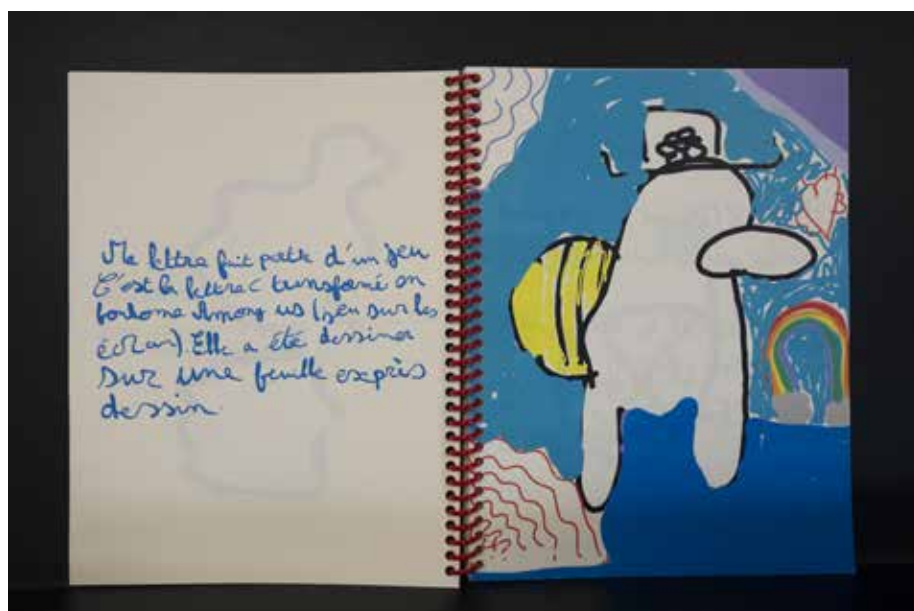 Ma lettra fait partie d'un jeu
C'est la lettre C transformé en
fantome Among us (jeu sur les
écran). Elle a été dessiner
sur une feuille exprès
dessin